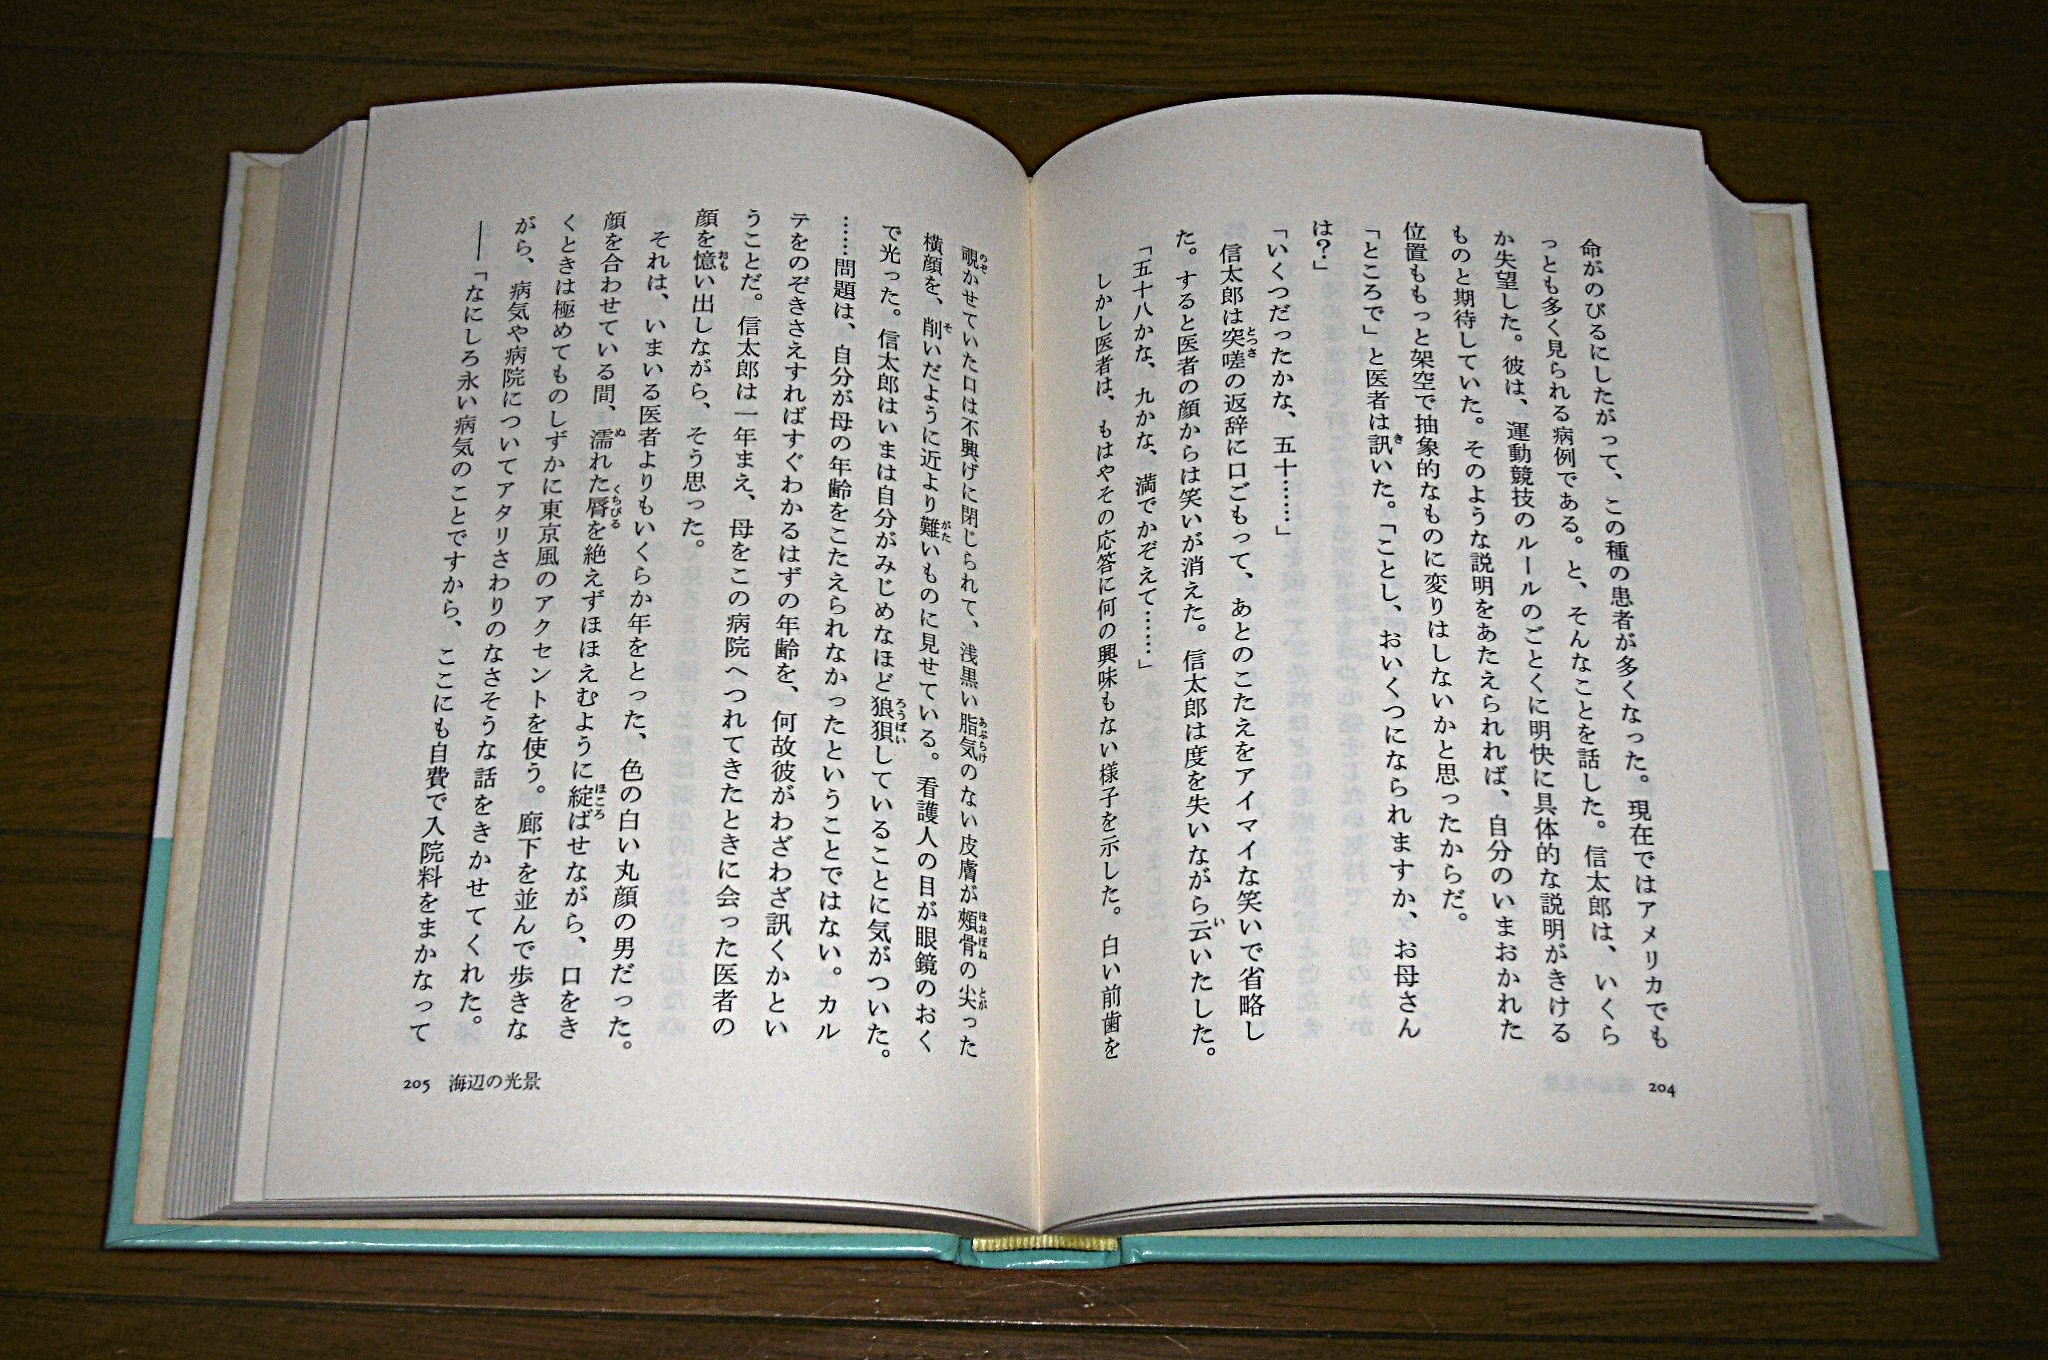 命がのびるにしたがって、この種の患者が多くなった。現在ではアメリカでも
っとも多く見られる病例である。と、そんなことを話した。信太郎は、いくら
か失望した。彼は、運動競技のルールのごとくに明快に具体的な説明がきける
ものと期待していた。そのような説明をあたえられれば、自分のいまおかれた
位置ももっと架空で抽象的なものに変りはしないかと思ったからだ。
「ところで」と医者は訊いた。「ことし、おいくつになられますか、お母さん
は？」
「いくつだったかな、五十……」
信太郎は突嗟の返辞に口ごもって、あとのこたえをアイマイな笑いで省略し
た。すると医者の顔からは笑いが消えた。信太郎は度を失いながら云いたした。
「五十八かな、九かな、満でかぞえて……」
しかし医者は、もはやその応答に何の興味もない様子を示した。白い前歯を
204
覗かせていた口は不興げに閉じられて、浅黒い脂気のない皮膚が頰骨の尖った
横顔を、削いだように近より難いものに見せている。看護人の目が眼鏡のおく
で光った。信太郎はいまは自分がみじめなほど狼狽していることに気がついた。
……問題は、自分が母の年齢をこたえられなかったということではない。カル
テをのぞきさえすればすぐわかるはずの年齢を、何故彼がわざわざ訊くかとい
うことだ。信太郎は一年まえ、母をこの病院へつれてきたときに会った医者の
顔を憶い出しながら、そう思った。
それは、いまいる医者よりもいくらか年をとった、色の白い丸顔の男だった。
顔を合わせている間、濡れた脣を絶えずほほえむように綻ばせながら、口をき
くときは極めてものしずかに東京風のアクセントを使う。廊下を並んで歩きな
がら、病気や病院についてアタリさわりのなさそうな話をきかせてくれた。
――「なにしろ永い病気のことですから、ここにも自費で入院料をまかなって
205 海辺の光景